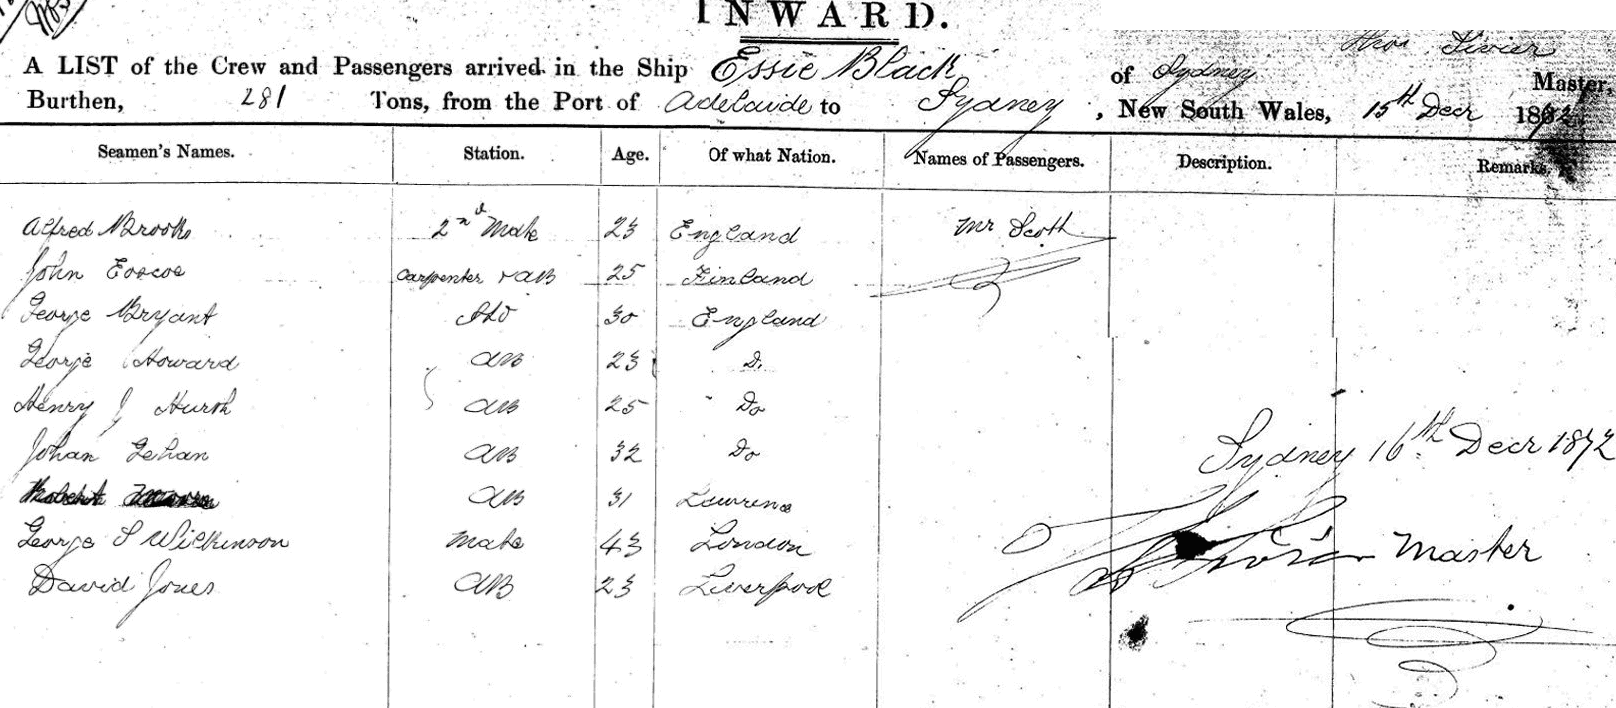 INWARD.
A LIST of the Crew and Passengers arrived in the Ship Essie Black of Sydney Thos Master,
Burthen, 281 Tons, from the Port of Adelaide to Sydney, New South Wales, 15th Decr 1872
Seamen's Names. Station. Age. Of what Nation. Names of Passengers. Description. Remarks.
Alfred Brooks 2nd Mate 23 England Mr Scott
John Carpenter & AB 25 Finland
George Bryant Do 30 England
George Howard AB 23 Do
Henry J AB 25 Do
Johan AB 32 Do
AB 31
George S Wilkinson Mate 43 London
David Jones AB 23 Liverpool
Sydney 16th Decr 1872
Master